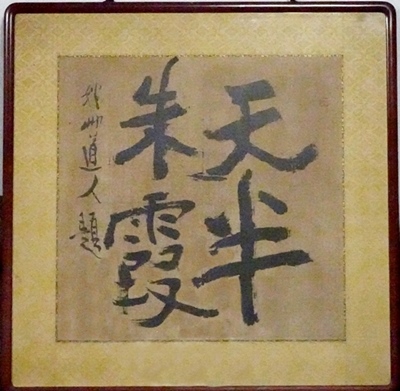 天半
朱霞
州道人題